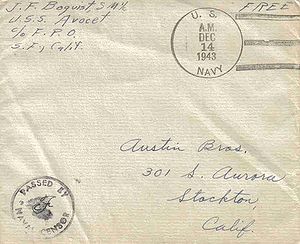 J. F. Bogust, SM 1/c
U.S.S. Avocet
c/o F.P.O.
S.F., Calif.
U. S.
A.M.
DEC
14
1943
NAVY
FREE
Austin Bros.
301 S. Aurora
Stockton
Calif.
PASSED BY
NAVAL CENSOR